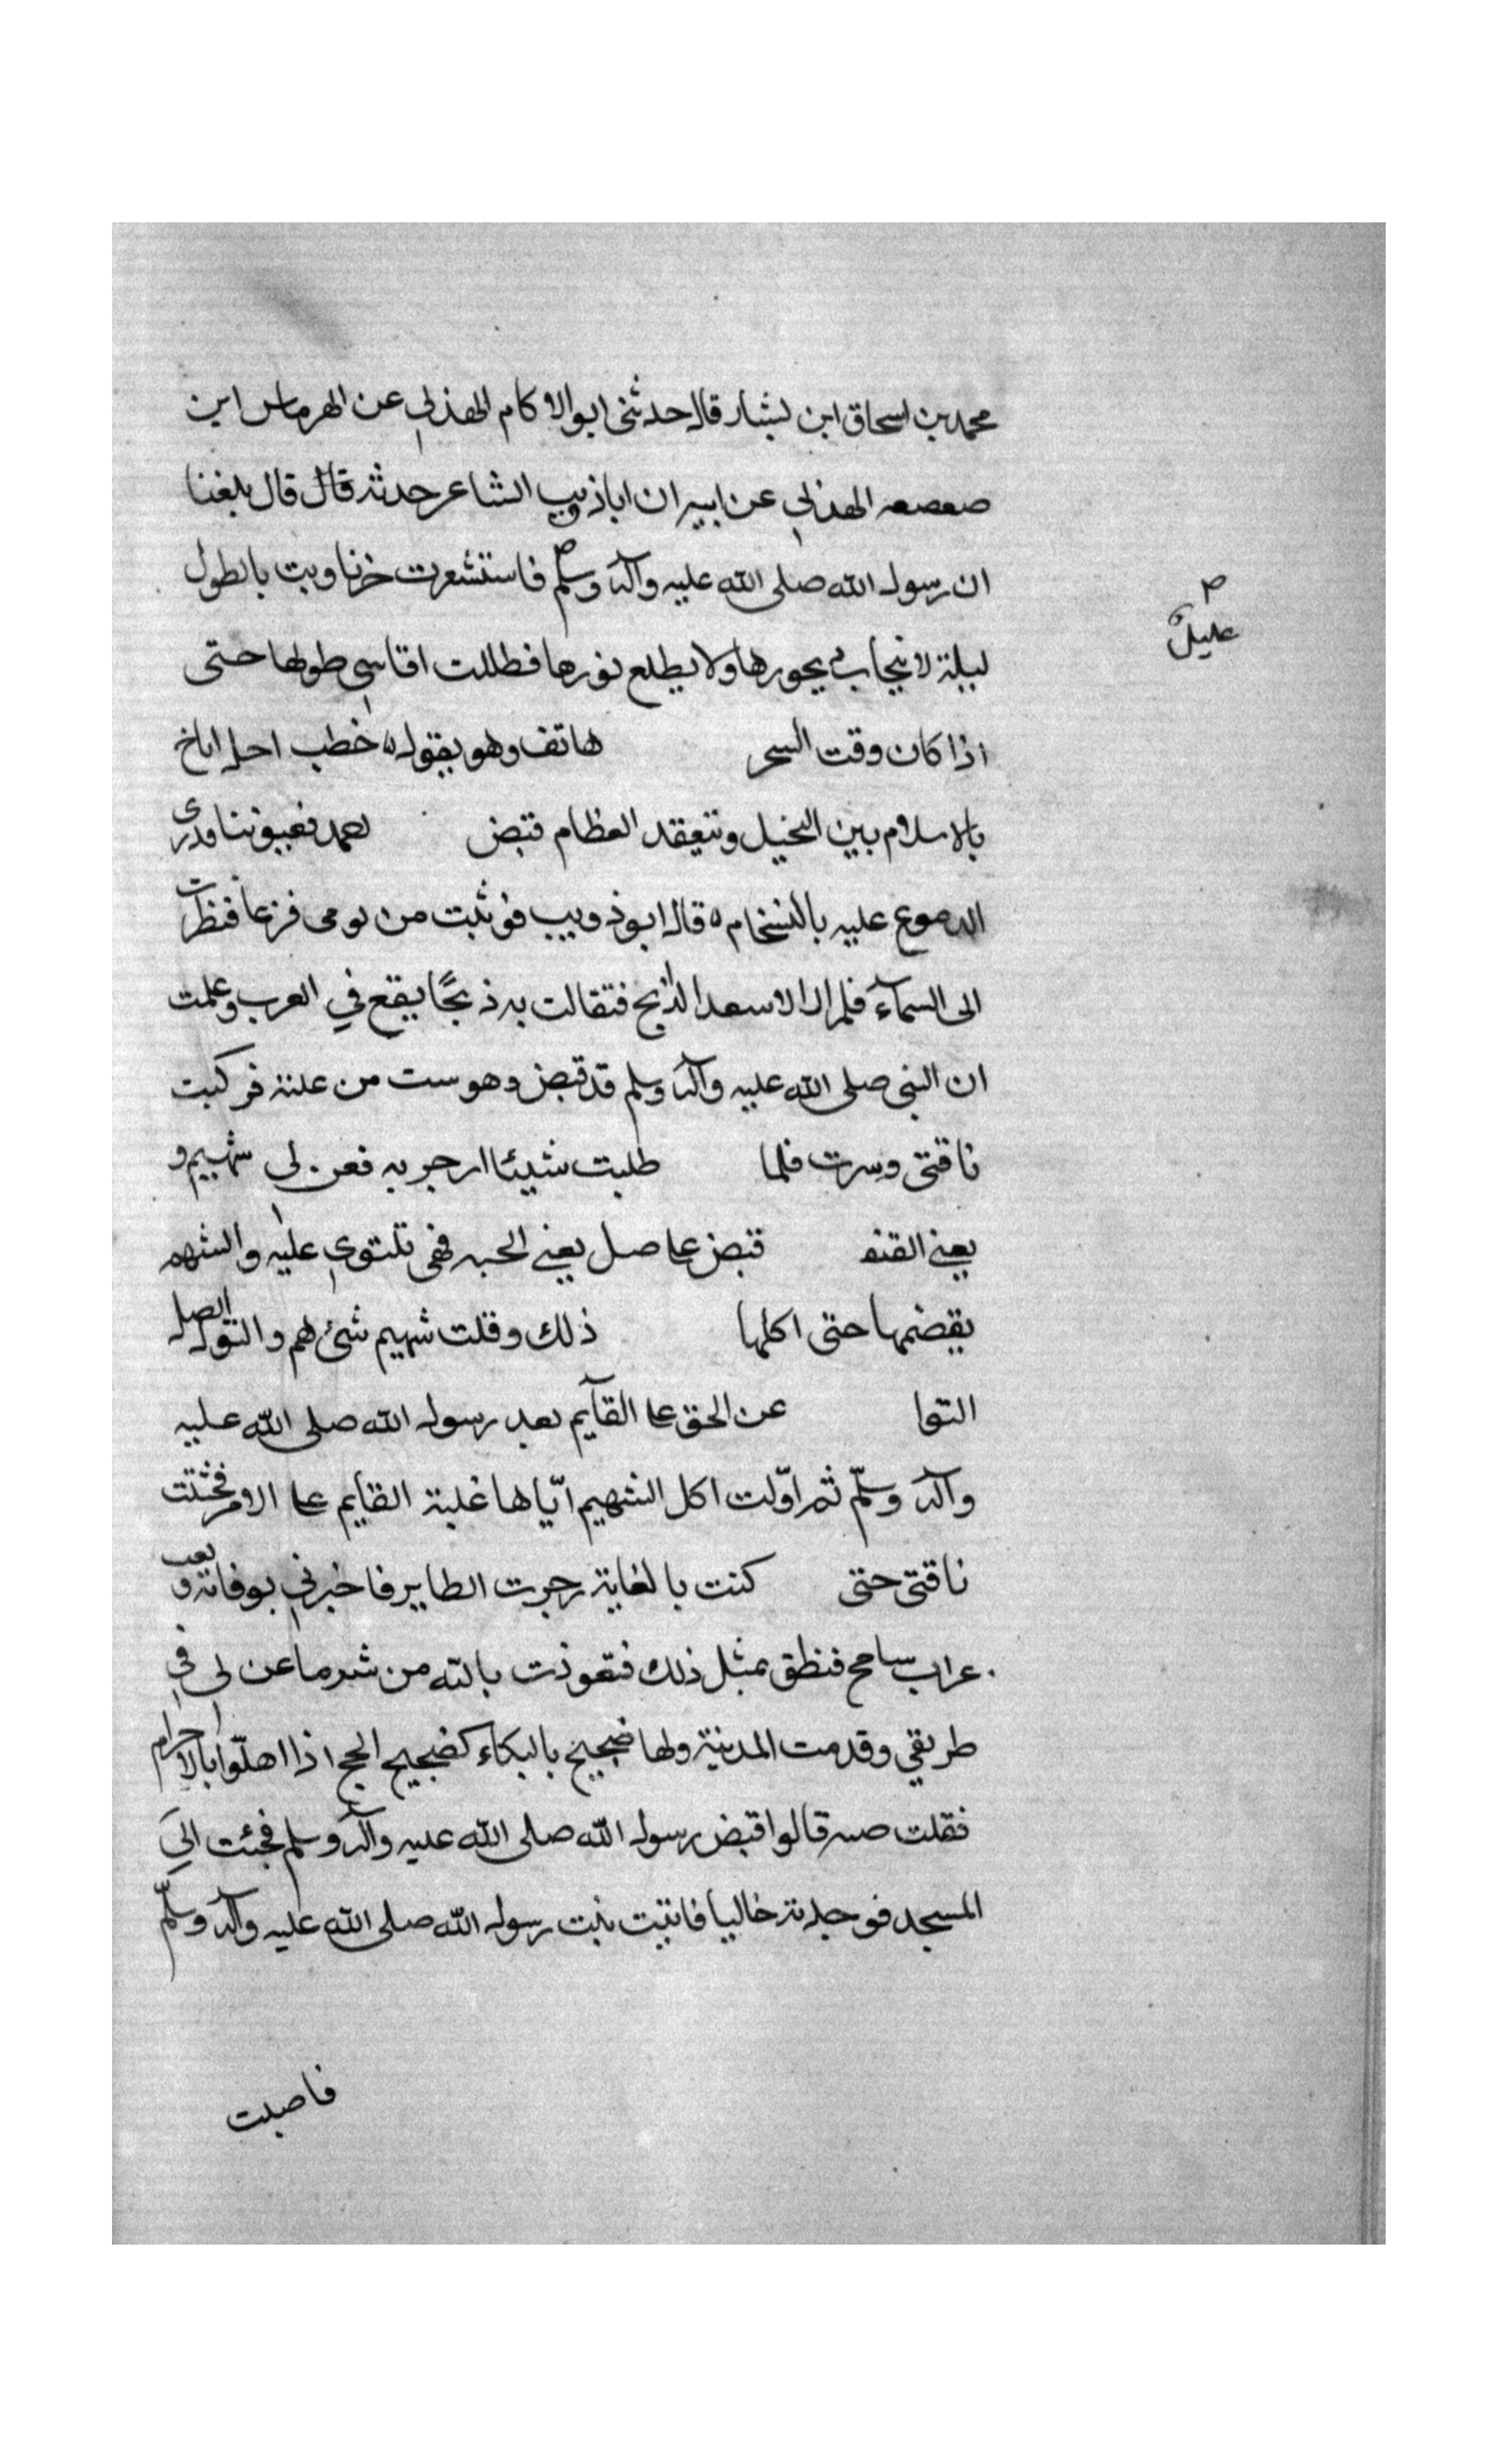 محمد بن اسحاق ابن بشار قال حدثنى ابو الاكام الهذلي عن الهرماس ابن
صعصعه الهذلي عن ابيه ان اباذويب الشاعر حدثه قال قال بلغنا
ان رسول الله صلى الله عليه وآله وسلم فاستشعرت حزنا وبت باطول
عليل
ليلة لا ينجاب ديجورها ولا يطلع نورها فظللت اقاسي طولها حتى
اذا كان وقت السحر هاتف وهو يقول خطب اجل اناخ
بالاسلام بين النخيل ومنعقد العظام قبض فعيوننا تدرى
الدموع عليه بالتسجام قال ابو ذويب فوثبت من نومى فزعا فنظرت
الى السمآء فلم ار الا سعد الذابح فتفالت به ذبحًا يقع في العرب وعلمت
ان النبى صلى الله عليه وآله وسلم قد قبض وهو ست من علته فركبت
ناقتى وسرت فلما طلبت شيئا ازجر به فعن لى شهيم و
يعني القنفد قبض على صل يعني الحيه فهى تلتوي عليه والشهم
يقضمها حتى اكلها ذلك وقلت شهيم شئ هم والتو الصل
التوا عن الحق على القآيم بعد رسول الله صلى الله عليه
وآله وسلّم ثم اوّلت اكل الشهيم ايّاها غلبة القايم على الامر فحثثت
ناقتى حتى كنت بالغابة زجرت الطاير فاخبرني بوفاته و نعب
غراب سانح فنطق بمثل ذلك فتعوذت بالله من شر ما عن لى في
طريقي وقدمت المدينة ولها ضجيج بالبكاء كضجيج الحج اذا اهلّوا بالاحرام
فقلت مه قالوا قبض رسول الله صلى الله عليه وآله وسلم فجئت الى
المسجد فوجدته خاليا فاتيت بيت رسول الله صلى الله عليه وآله وسلّم
فاصبت